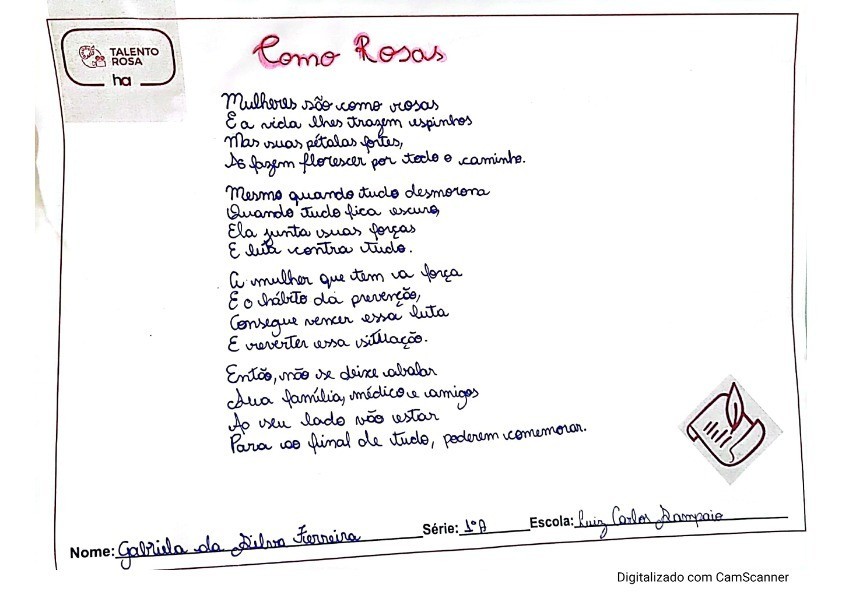 TALENTO
ROSA
ha
Como Rosas
Mulheres são como rosas
E a vida lhes trazem espinhos
Mas suas pétalas fortes,
As fazem florescer por todo o caminho.
Mesmo quando tudo desmorona
Quando tudo fica escuro,
Ela junta suas forças
E luta contra tudo.
A mulher que tem a força
E o hábito da prevenção,
Consegue vencer essa luta
E reverter essa situação.
Então, não se deixe abalar
Sua família, médico e amigos
Ao seu lado vão estar
Para ao final de tudo, poderem comemorar.
Nome: Gabriela da Silva Ferreira Série: 1º A Escola: Luiz Carlos Sampaio
Digitalizado com CamScanner